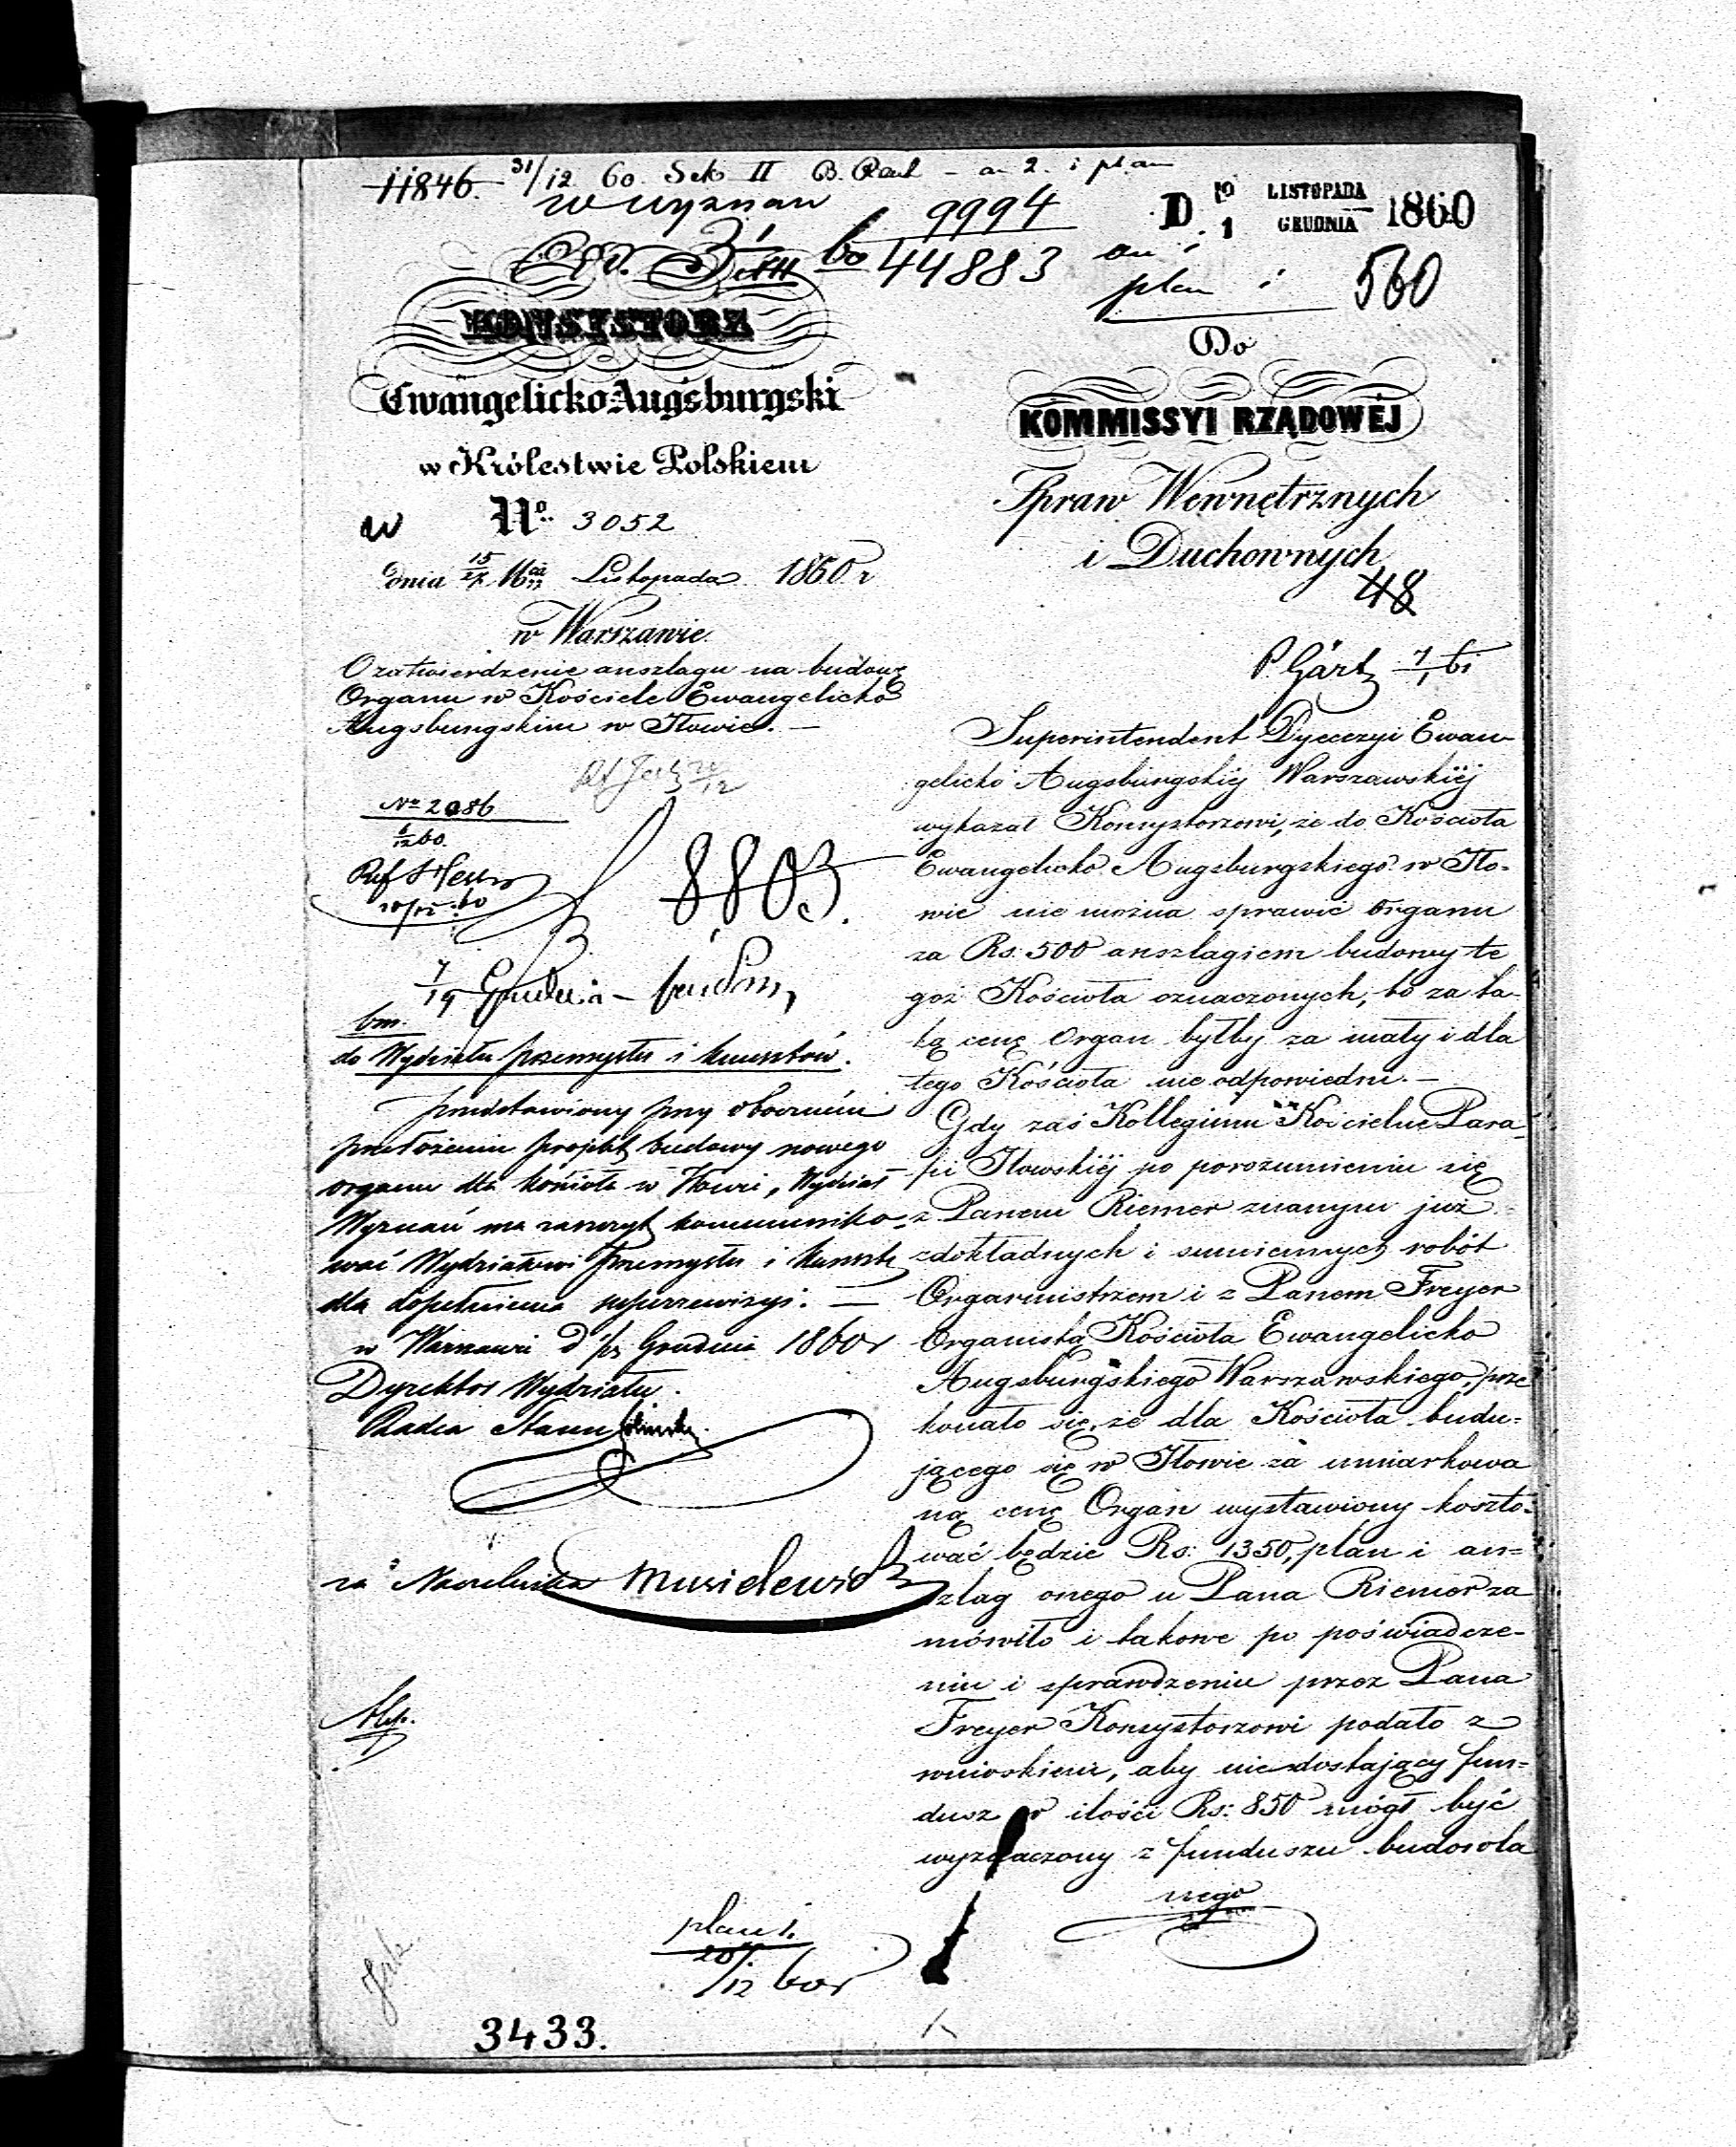 11846. 31/12 60. Sek II
w wyznan
9994
44883
plan 1
D. 19 LISTOPADA
1 GRUDNIA 1860
560
KONSYSTORZ
Ewangelicko Augsburgski
w Królestwie Polskiem
w No. 3052
dnia 15/27 Listopada 1860 r
w Warszawie.
O zatwierdzenie anszlagu na budowę
Organu w Kościele Ewangelicko
Augsburgskim w Iłowie. —
No 2086
8803.
7/19 Grudnia
do Wydziału przemysłu i kunsztów.
przedstawiony przy oboczném
przełożeniu projekt budowy nowego
organu dla kościoła w Iłowie, Wydział
Wyznań ma zaszczyt kommuniko-
wać Wydziałowi Przemysłu i kunszt
dla dopełnienia superrewizyi. —
w Warszawie d Grudnia 1860 r
Dyrektor Wydziału.
Radca Stanu
za Naczelnika
plan 1.
20/12 60 r
3433.
Do
KOMMISSYI RZĄDOWÉJ
Spraw Wewnętrznych
i Duchownych
48
P. Gärtz
Superintendent Dyecezyi Ewan-
gelicko Augsburgskiéj Warszawskiéj
wykazał Konsystorzowi, że do Kościoła
Ewangelicko Augsburgskiego w Iło-
wie nie można sprawić organu
za Rs: 500 anszlagiem budowy te
goż Kościoła oznaczonych, bo za ta-
ką cenę organ byłby za mały i dla
tego Kościoła nie odpowiedni. —
Gdy zaś Kollegium Kościelne Para-
fii Iłowskiéj po porozumieniu się
z Panem Riemer znanym już
z dokładnych i sumiennych robót
Organmistrzem i z Panem Freyer
Organistą Kościoła Ewangelicko
Augsburgskiego Warszawskiego, prze
konało się, że dla Kościoła budu-
jącego się w Iłowie za umiarkowa
ną cenę Organ wystawiony koszto-
wać będzie Rs: 1350, plan i an-
szlag onego u Pana Riemer za
mówiło i takowe po poświadcze-
niu i sprawdzeniu przez Pana
Freyer Konsystorzowi podało z
wnioskiem, aby niedostający fun-
dusz w ilości Rs: 850 mógł być
wyznaczony z funduszu budowla
nego